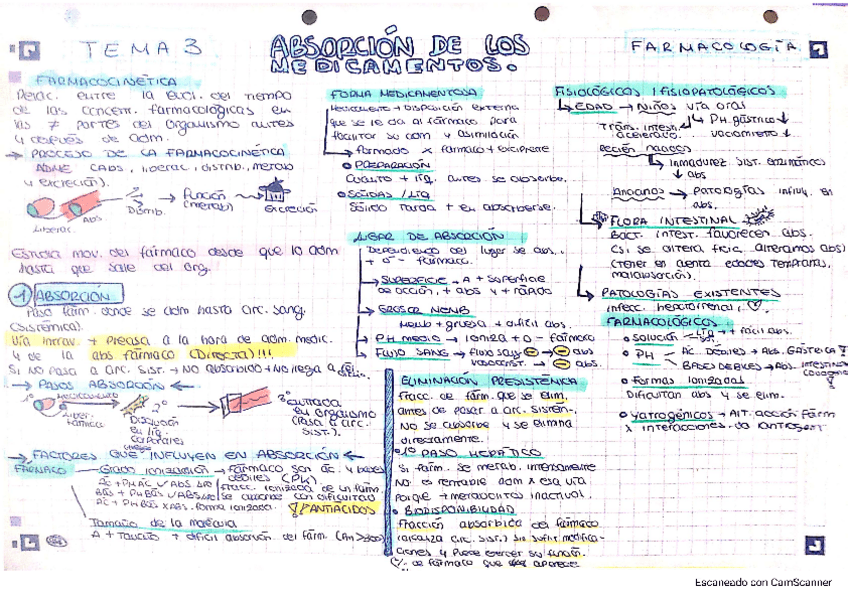 TEMA 3
ABSORCIÓN DE LOS
MEDICAMENTOS.
FARMACOLOGÍA.
FARMACOCINÉTICA
Relac. entre la evol. del tiempo
de las concentr. farmacológicas en
las ≠ partes del organismo antes
y después de adm.
→ PROCESO DE LA FARMACOCINÉTICA
ADME (ABS, liberac, distrib, metab
y excreción).
Liberac.
Abs
Distrib.
Función
(metab)
Excreción
Estudia mov. del fármaco desde que lo adm
hasta que sale del org.
1 ABSORCIÓN
Paso fárm. donde se adm hasta circ. sang.
(sistémica).
Vía intrav. + precisa a la hora de adm. medic.
y de la abs fármaco (DIRECTA)!!!
Si no pasa a circ. sist. → No absorbido → No llega a
→ PASOS ABSORCIÓN ←
1º
MEDICAMENTO
Liber.
fármaco
2º
Disolución
en líq.
corporales
3º entrada
en organismo
(pasa a circ.
sist.).
→ FACTORES QUE INFLUYEN EN ABSORCIÓN ←
FÁRMACO
Grado ionización → Fármaco son ác. y bases
débiles (PK)
Fracc. ionizada de un fárm.
se absorbe con dificultad
forma ionizada.
ANTIÁCIDOS
Tamaño de la molécula
A + tamaño + difícil absorción del fárm.
FORMA MEDICAMENTOSA
Medicamento → Disposición externa
que se le da al fármaco para
facilitar su adm y asimilación
→ formado x fármaco + excipiente
PREPARACIÓN
Cuanto + líq. antes se absorbe.
SÓLIDAS / LÍQ
Sólido tarda + en absorberse.
LUGAR DE ABSORCIÓN
Dependiendo del lugar se abs.
+ o - fármaco.
→ SUPERFICIE → A + superficie
de acción, + abs y + rápido
→ GROSOR MEMB
Memb + gruesa + difícil abs.
→ PH MEDIO → ioniza + o - fármaco
→ FLUJO SANG → flujo sang ⊖ → ⊖ abs
vasoconst. → ⊖ abs.
ELIMINACIÓN PRESISTÉMICA
Fracc. de fárm. que se elim.
antes de pasar a circ. sistém.
No se absorbe y se elimina
directamente.
1º PASO HEPÁTICO
Si fárm. se metab. intensamente
No es rentable adm x esa vía
porque → metabolitos inactivos.
BIODISPONIBILIDAD
Fracción absorbida del fármaco
(alcanza circ. sist.) sin sufrir modifica-
ciones y puede ejercer su función.
(% de fármaco que aparece
FISIOLÓGICOS / FISIOPATOLÓGICOS
→ EDAD → Niños vía oral
Tráns. intest.
acelerado.
PH. gástrico ↓
vaciamiento ↓
Recién nacidos
Inmadurez sist. enzimático
↓ abs
Ancianos → patologías influy. en
abs.
FLORA INTESTINAL
Bact. intest. favorecen abs.
(si se altera alteramos abs)
(tener en cuenta edades tempranas,
malabsorción).
→ PATOLOGÍAS EXISTENTES
FARMACOLÓGICOS
SOLUCIÓN - LÍQ. ++ fácil abs.
PH
→ Ác. DÉBILES → Abs. GÁSTRICA
→ BASES DÉBILES → Abs. INTESTINO
Formas ionizadas
Dificultan abs y se elim.
Yatrogénicos → Alt. acción fárm
x interacciones
Escaneado con CamScanner